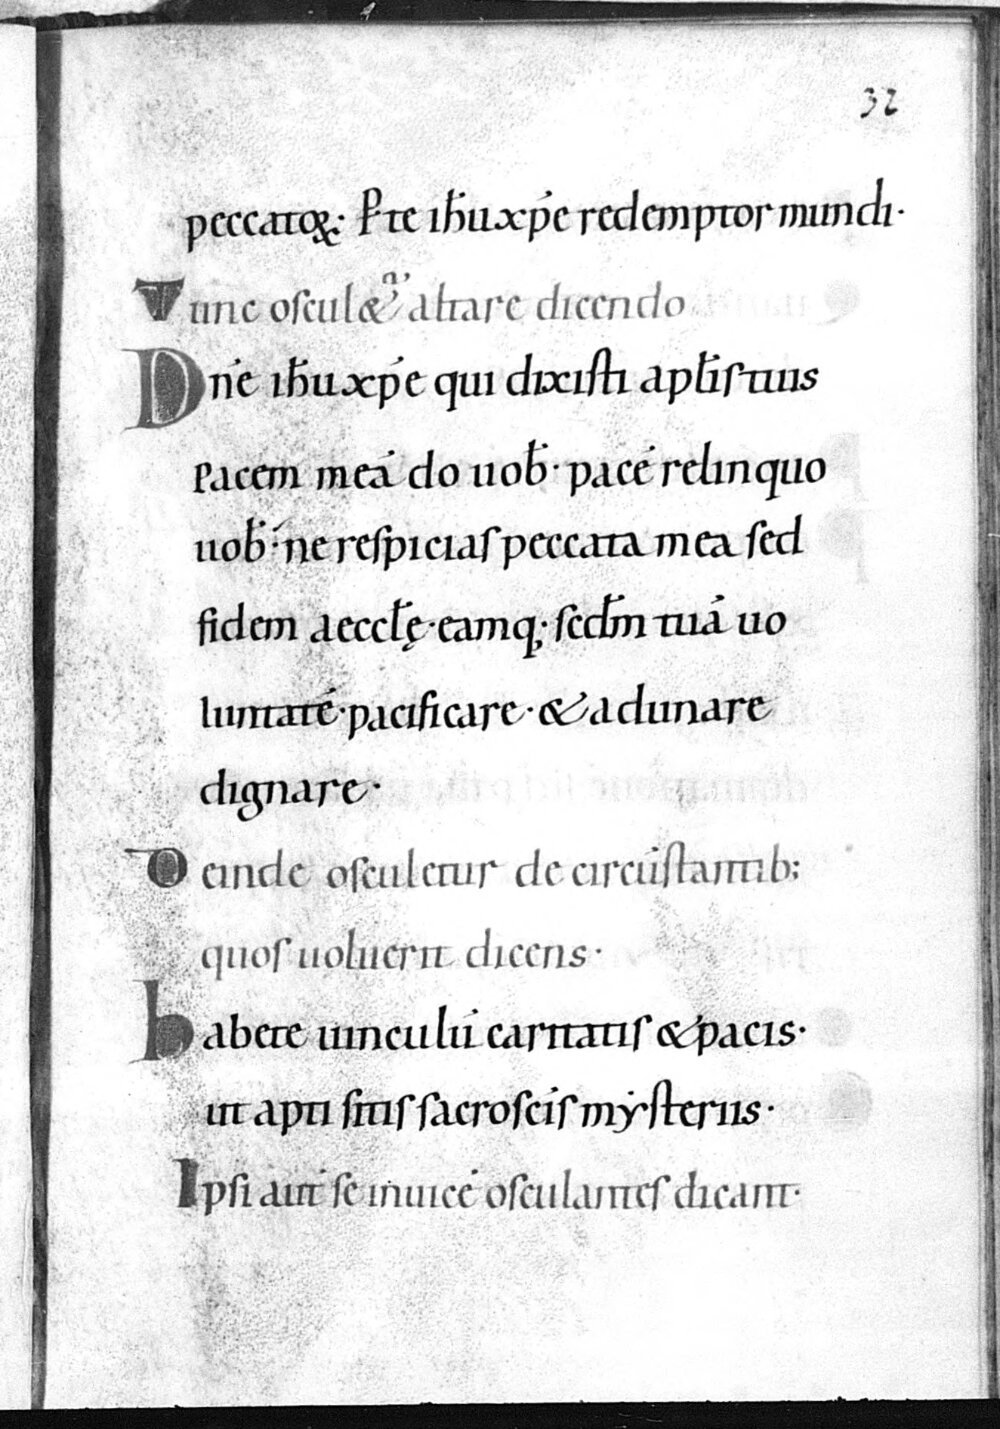 32
peccatoꝝ· P̄te ih̄u xp̄e redemptor mundi·
Tunc oscul&ᷓ altare dicendo
Dn̄e ih̄u xp̄e qui dixisti apl̄is tuis
Pacem meā do uob̄· pacē relinquo
uob̄· ne respicias peccata mea sed
fidem aeccl̄ę· eamq;· scd̄m tuā uo
luntatē· pacificare· & adunare
dignare·
Deinde osculetur de circūstantib;
quos uoluerit dicens·
habete uinculū caritatis & pacis·
ut apti sitis sacrosc̄is mẏsteriis·
Ipsi aut̄ se inuicē osculantes dicant·